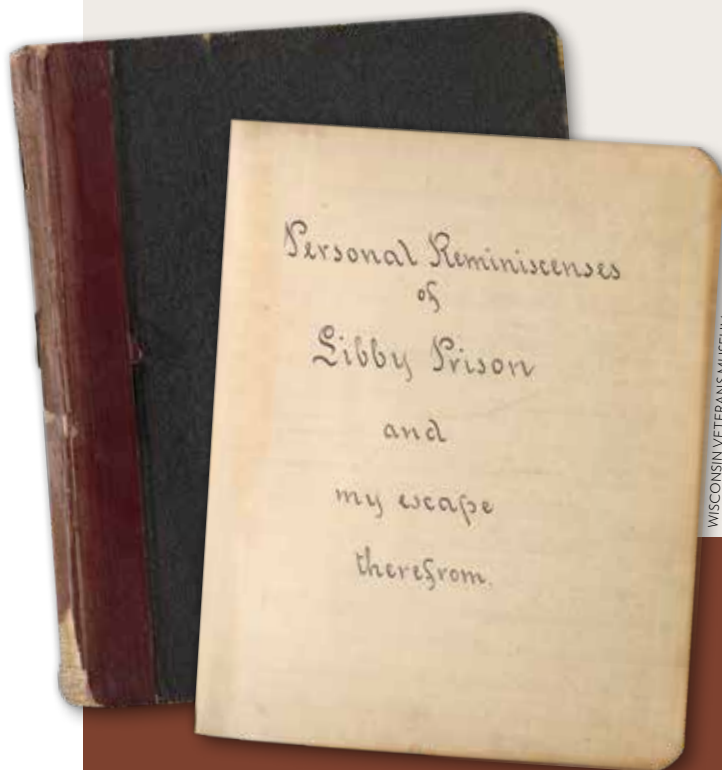 Personal Reminiscenses
of
Libby Prison
and
my escape
therefrom.
WISCONSIN VETERANS MUSEUM